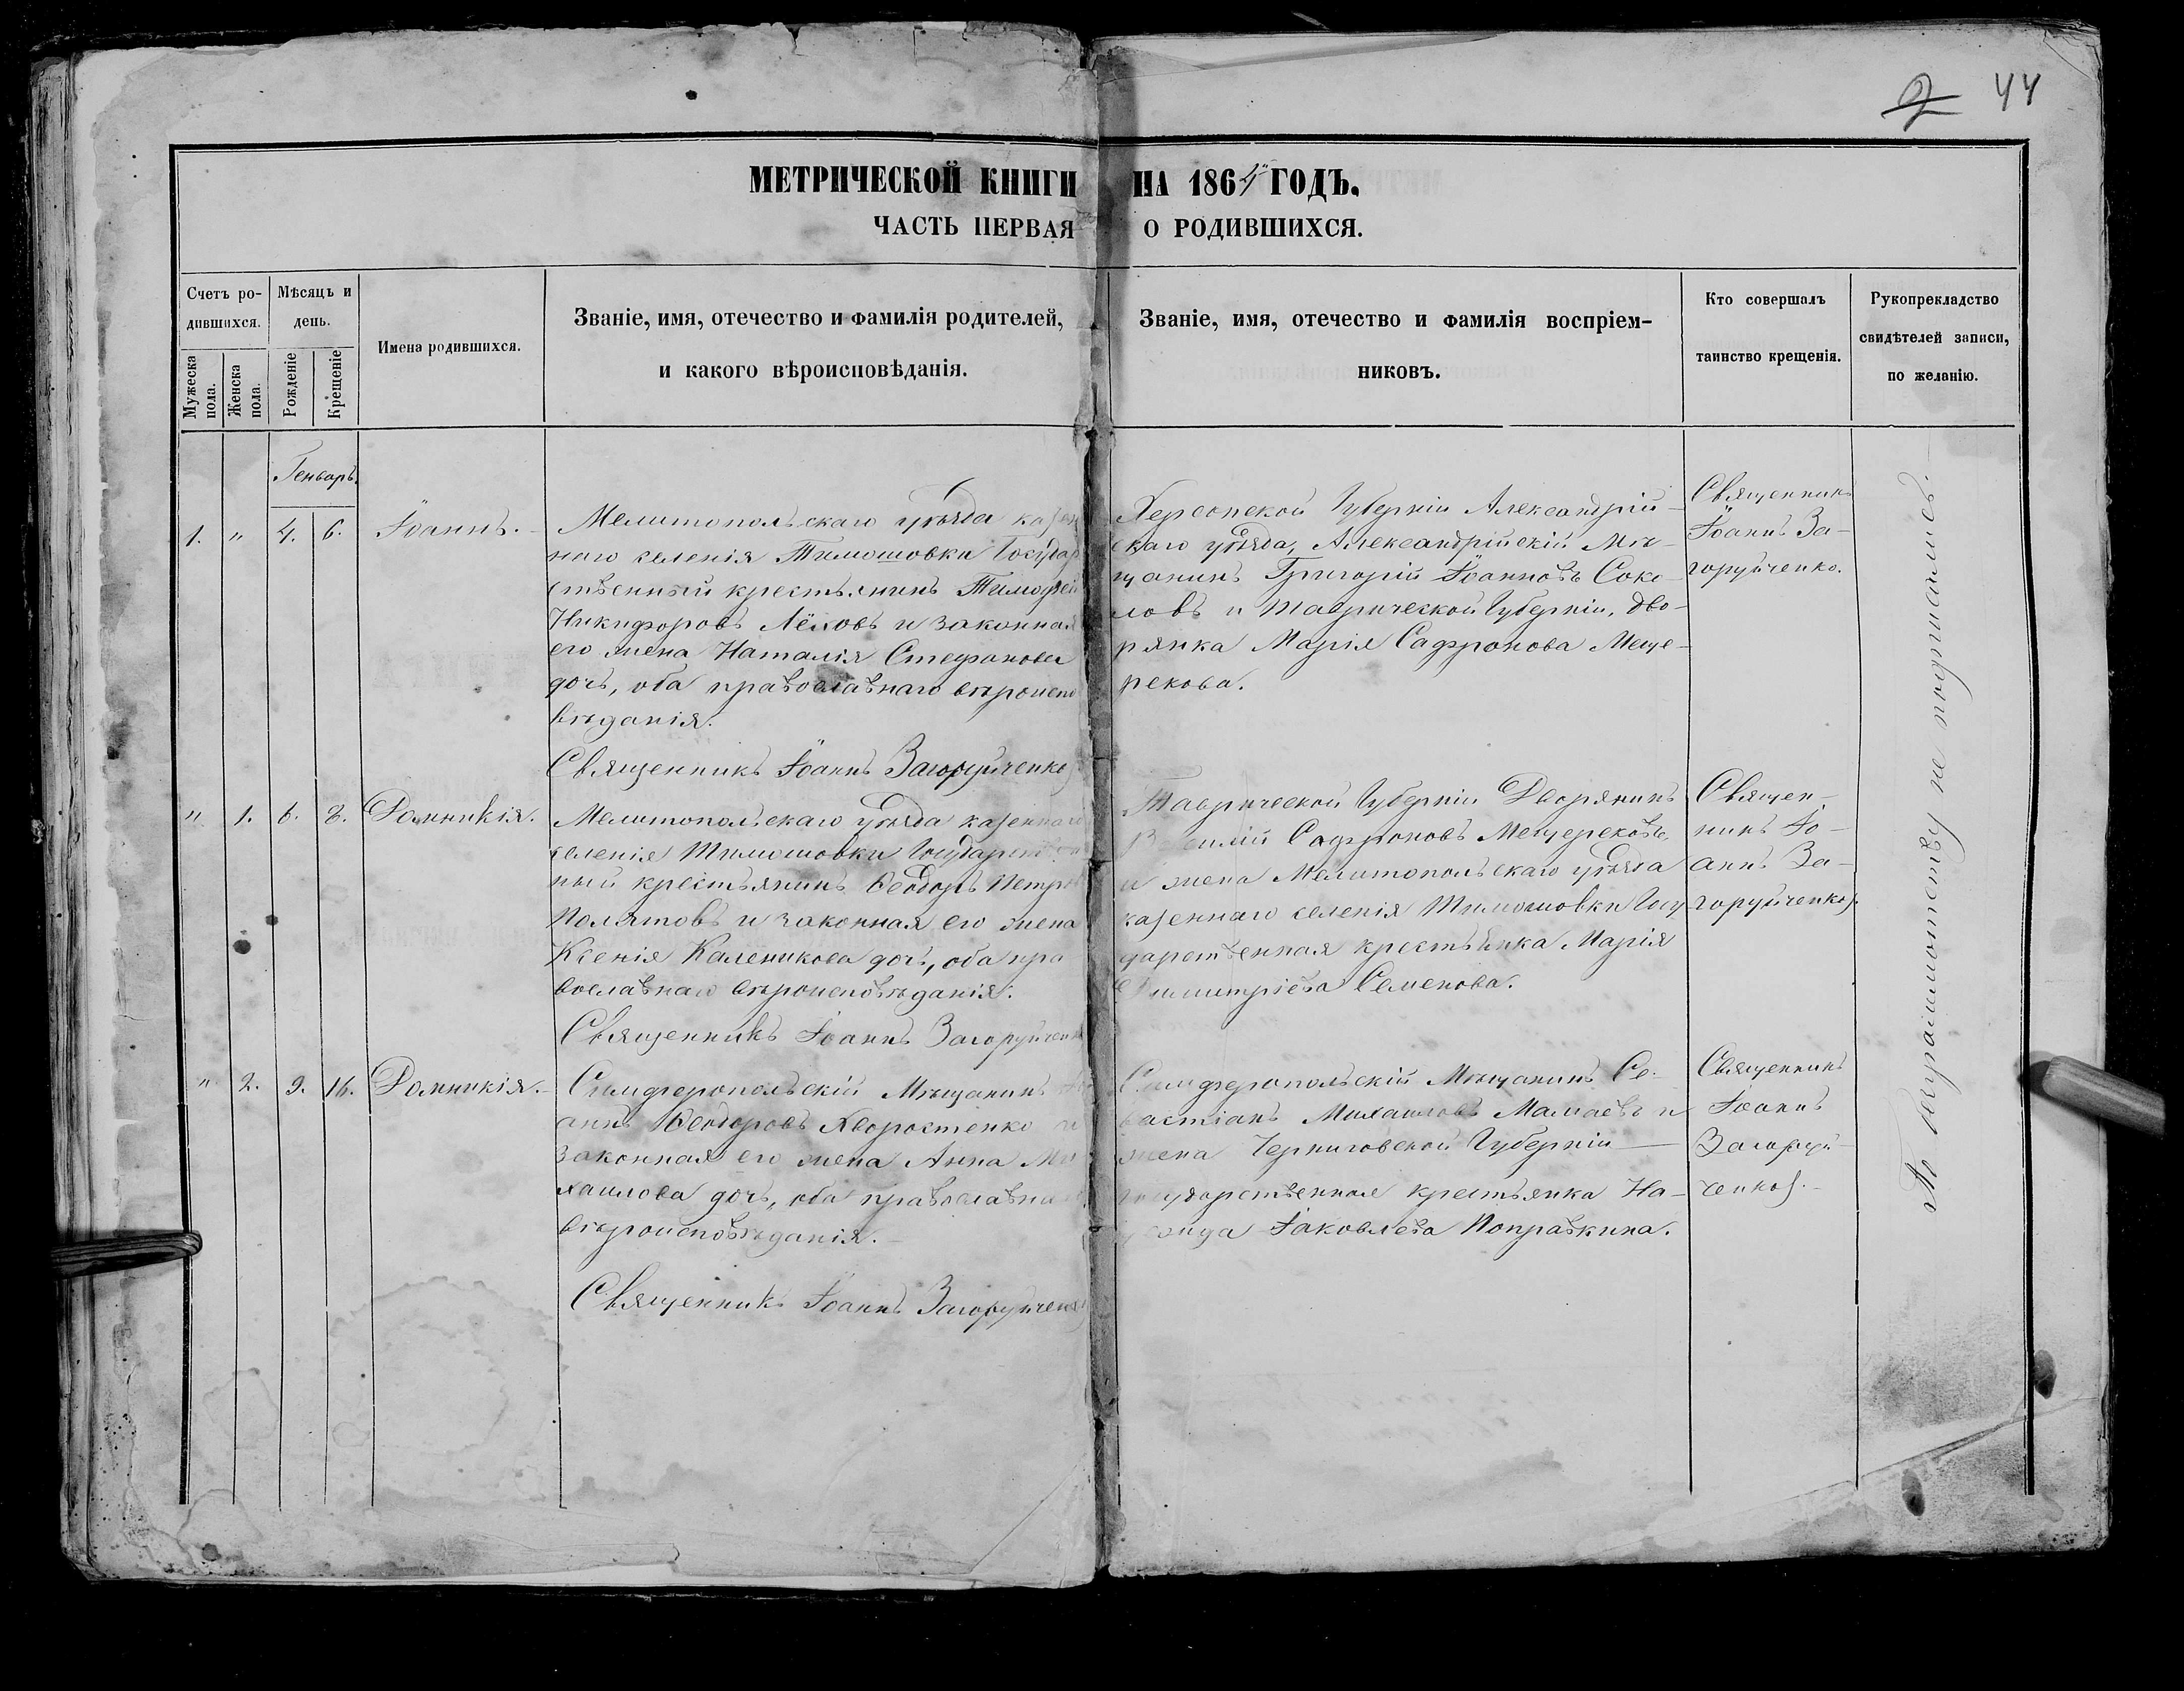 2 44
МЕТРИЧЕСКОЙ КНИГИ НА 1864 ГОДЪ.
ЧАСТЬ ПЕРВАЯ О РОДИВШИХСЯ.
Счетъ ро-
дившихся.
Мужеска
пола.
Женска
пола.
Мѣсяцъ и
день.
Рожденіе
Крещеніе
Имена родившихся.
Званіе, имя, отечество и фамилія родителей,
и какого вѣроисповѣданія.
Званіе, имя, отечество и фамилія воспріем-
никовъ.
Кто совершалъ
таинство крещенія.
Рукоприкладство
свидѣтелей записи,
по желанію.
Генварь.
1. " 4. 6. Іоаннъ.
Мелитопольскаго уѣзда казен
наго селенія Тимошовки Государ
ственный крестьянинъ Тимофей
Никифоровъ Лёховъ и законная
его жена Наталія Стефанова
дочь, оба православнаго вѣроиспо
вѣданія.
Священникъ Іоаннъ Загоруйченко
Херсонской Губерніи Александрій-
скаго уѣзда, Александрійскій Мѣ-
щанинъ Григорій Іоанновъ Соко-
ловъ и Таврической Губерніи, дво-
рянка Марія Сафронова Меще-
рекова.
Священникъ
Іоаннъ За-
горуйченко.
" 1. 6. 8. Домникія.
Мелитопольскаго уѣзда казеннаго
селенія Тимошовки Государствен
ный крестьянинъ Ѳеодоръ Петро
Полятовъ и законная его жена
Ксенія Каленикова дочь, оба пра
вославнаго вѣроисповѣданія.
Священникъ Іоаннъ Загоруйченк
Таврической Губерніи Дворянинъ
Василій Сафроновъ Мещерековъ,
и жена Мелитопольскаго уѣзда
казеннаго селенія Тимошовки Госу-
дарственная крестьянка Марія
Димитріева Семенова.
Священ-
никъ Іо-
аннъ За-
горуйченко.
" 2. 9. 16. Домникія.
Симферопольскій Мѣщанинъ Іо
аннъ Ѳеодоровъ Хворостенко и
законная его жена Анна Ми
хаилова дочь, оба православна
вѣроисповѣданія.
Священникъ Іоаннъ Загоруйченк
Симферопольскій Мѣщанинъ Се-
вастіанъ Михаиловъ Мамаевъ и
жена Черниговской Губерніи
государственная крестьянка На-
Іаковлева Поправкина.
Священникъ
Іоаннъ
Загоруй-
ченко.
По неграмотству не подписались.